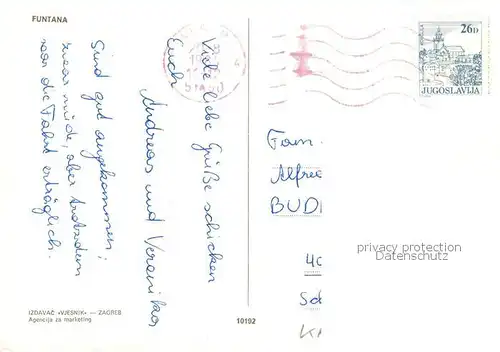 FUNTANA
Sind gut angekommen;
zwar müde, aber trotzdem
war die Fahrt erträglich.
Viele liebe Grüße schicken
Euch
Andreas und Veronika
26D
JUGOSLAVIJA
Fam.
Alfre
BUD
40
Sc
privacy protection
Datenschutz
IZDAVAČ «VJESNIK» — ZAGREB
Agencija za marketing
10192